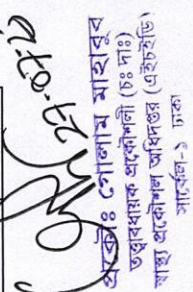 ২৭-০৭-২৬
প্রকৌঃ গোলাম মাহাবুব
তত্ত্বাবধায়ক প্রকৌশলী (চঃ দাঃ)
স্বাস্থ্য প্রকৌশল অধিদপ্তর (এইচইডি)
সার্কেল-১ ঢাকা